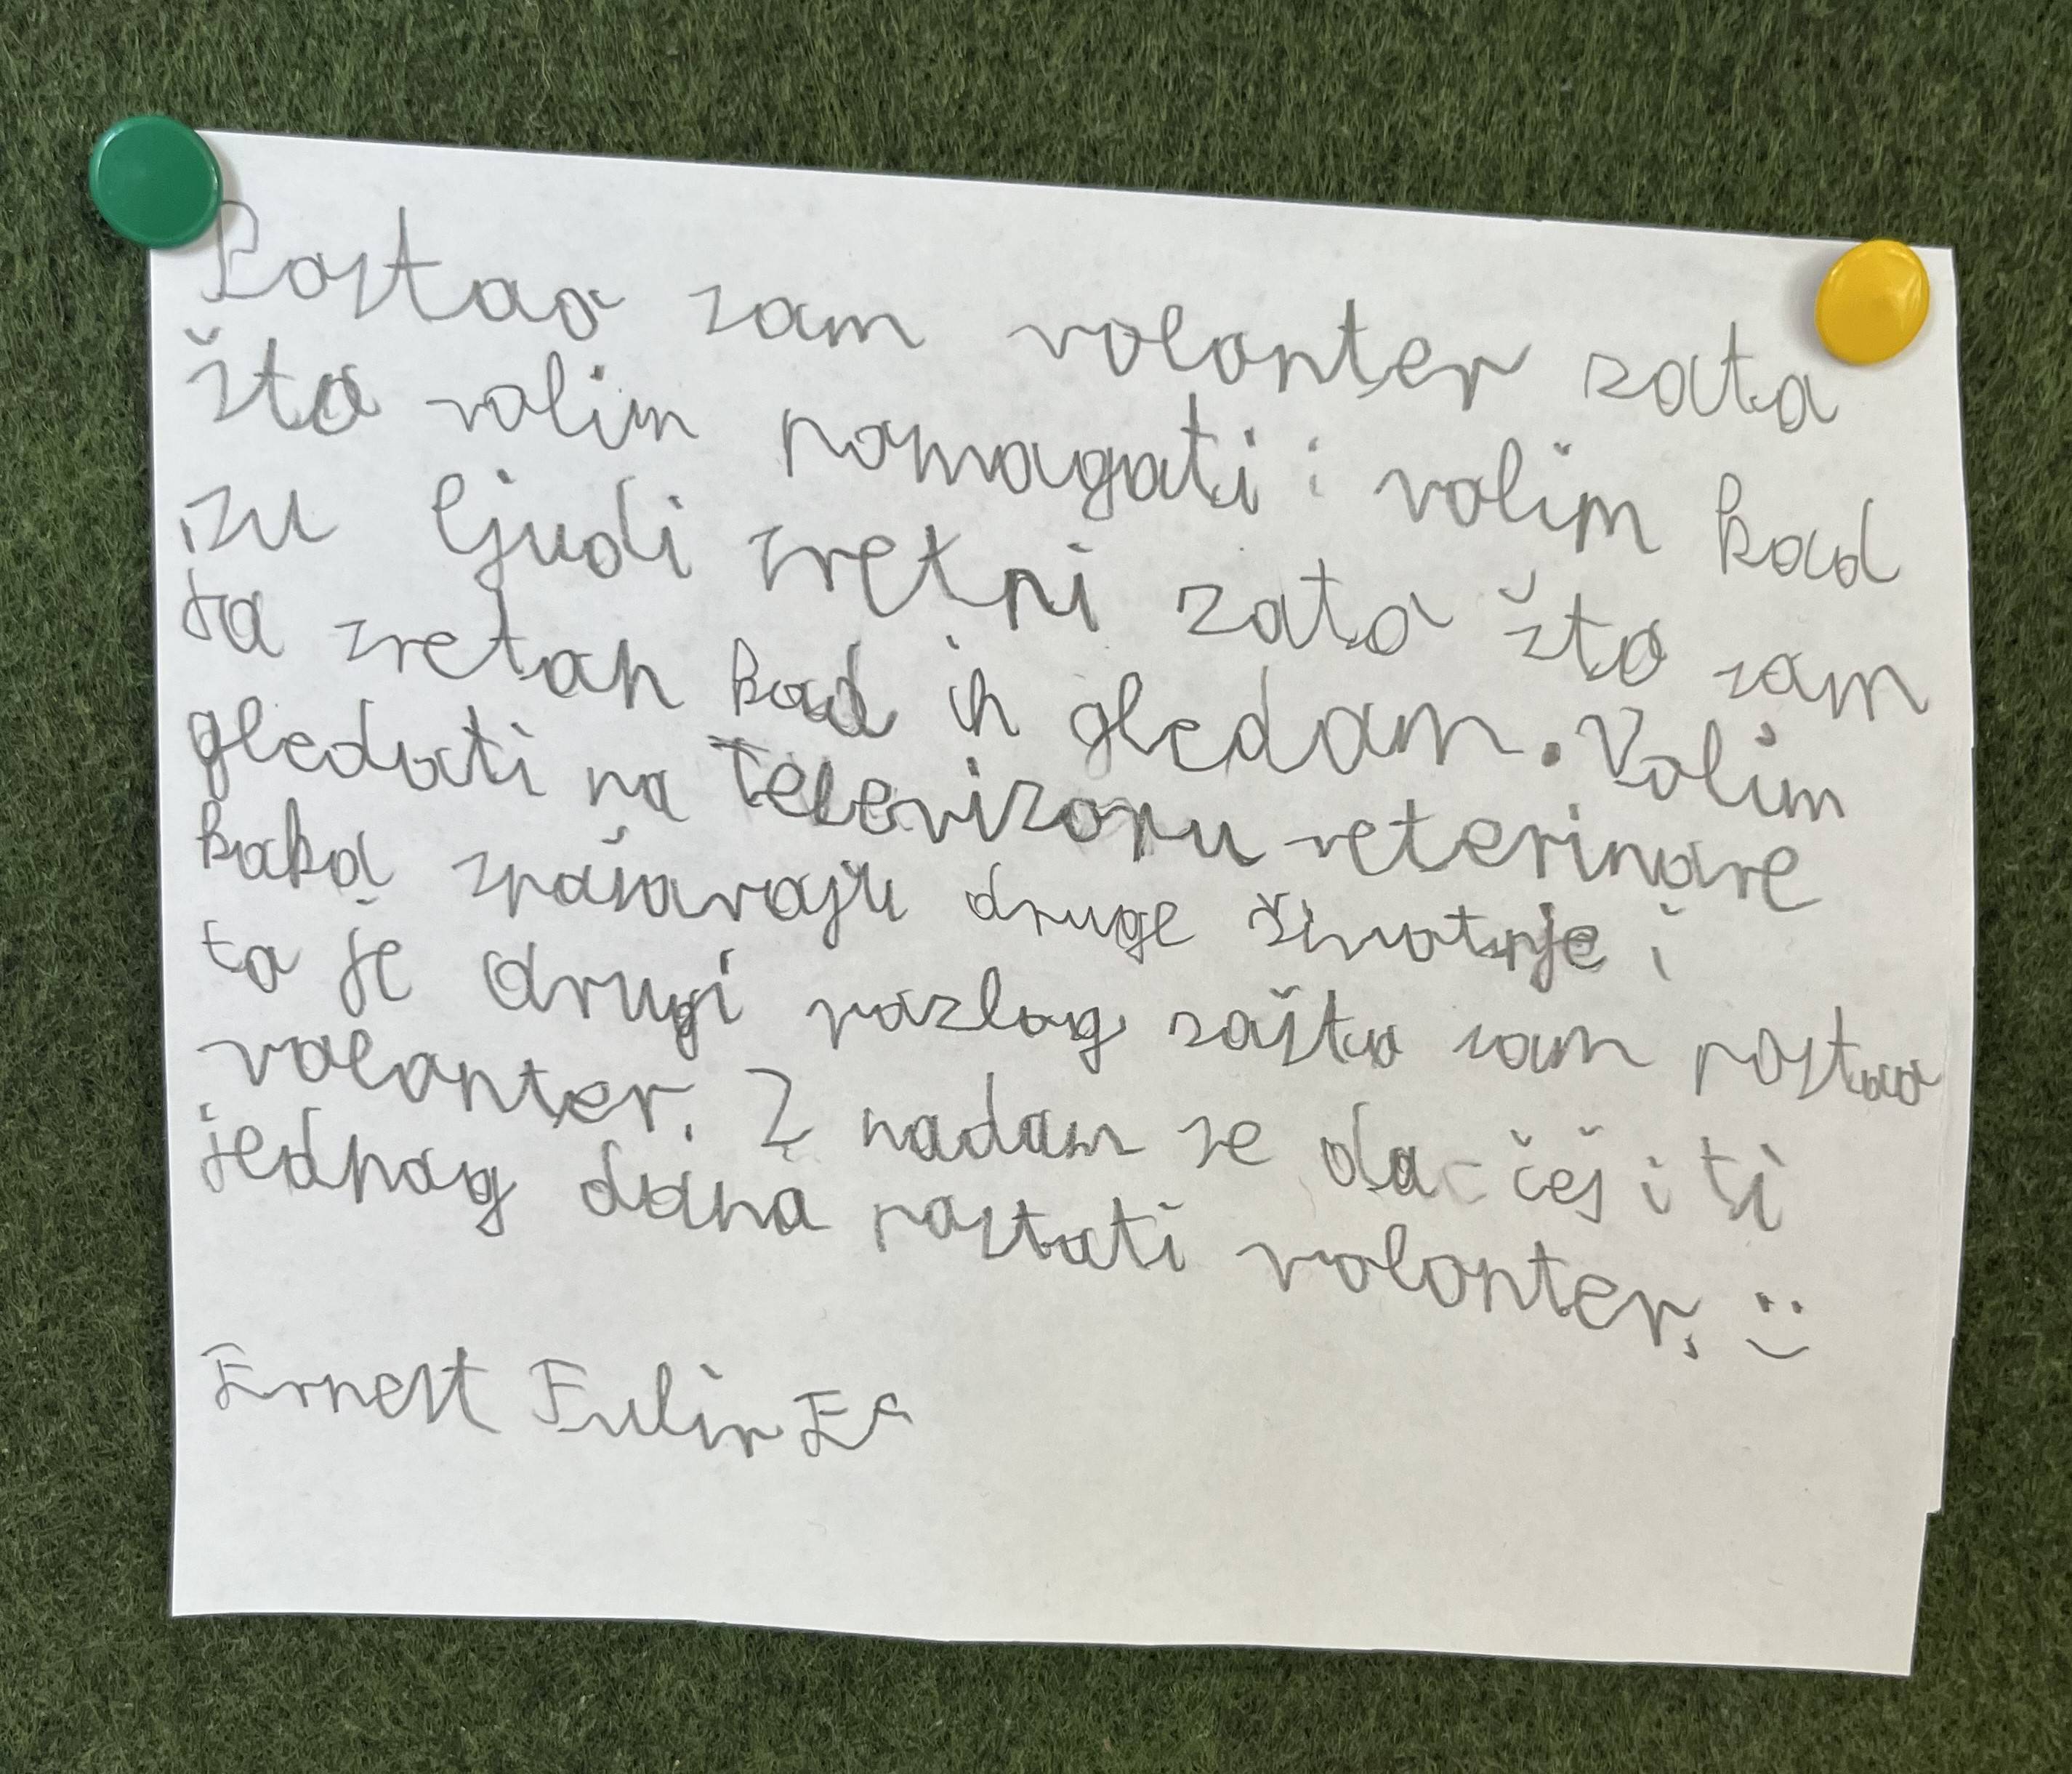 Postao sam volonter zato
što volim pomagati i volim kad
su ljudi sretni zato što sam
ja sretan kad ih gledam. Volim
gledati na televizoru veterinare
kako spašavaju druge životinje i
to je drugi razlog zašto sam postao
volonter. I nadam se da češ i ti
jednog dana postati volonter. :)
Ernest Fulir